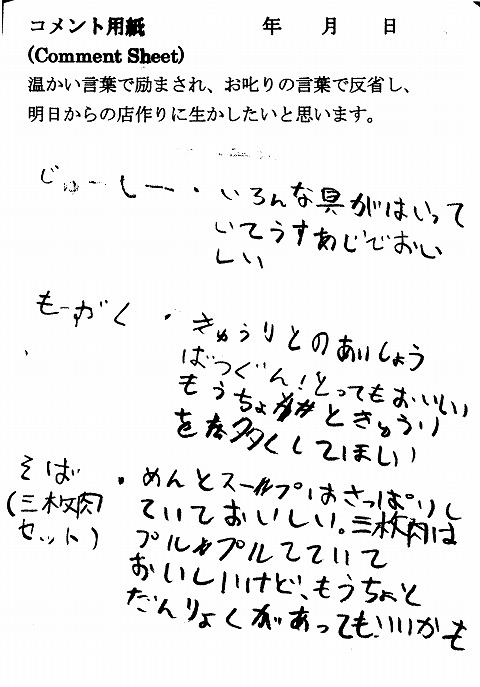 コメント用紙　年　月　日
(Comment Sheet)
温かい言葉で励まされ、お叱りの言葉で反省し、
明日からの店作りに生かしたいと思います。
じゅーしー・いろんな具がはいって
いてうすあじでおい
しい
もーがく・きゅうりとのあいしょう
ばつぐん!とってもおいしい
もうちょっときゅうり
を多くしてほしい
そば・めんとスープはさっぱりし
(三枚肉　ていておいしい。三枚肉は
セット)　プルプルしていて
おいしいけど、もうちょと
だんりょくがあってもいいかも